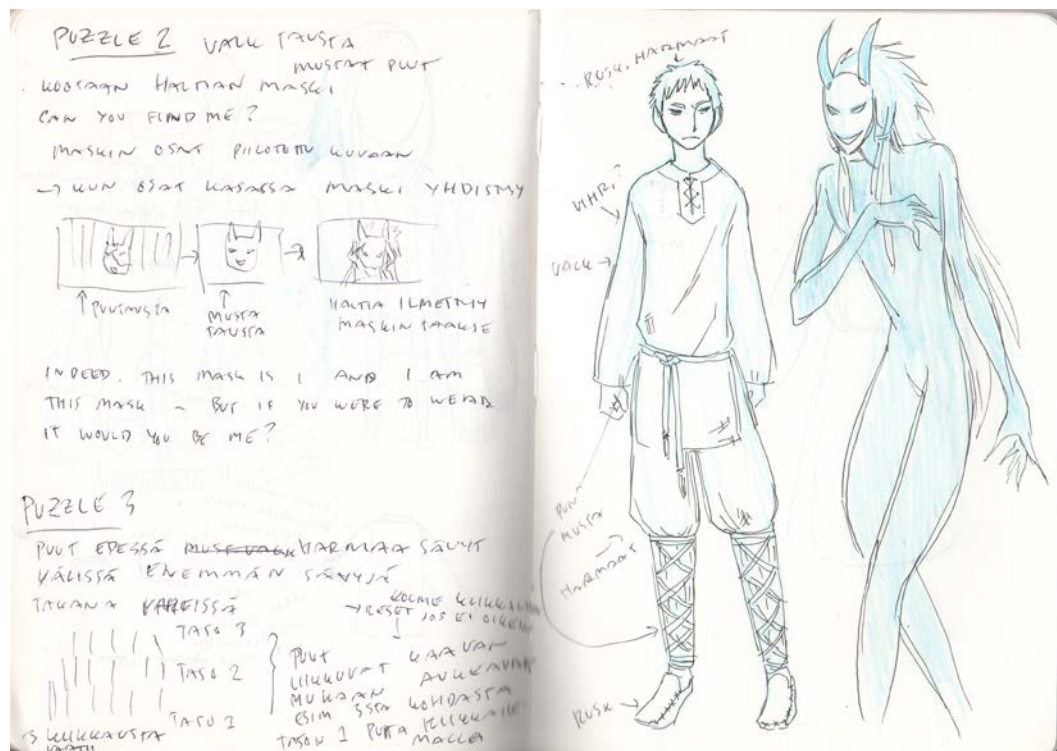 PUZZLE 2 VALK TAUSTA
MUSTAT PUUT
KOOTAAN HALTIAN MASKI
CAN YOU FIND ME?
MASKIN OSAT PIILOTETTU KUVAAN
→ KUN OSAT KASASSA MASKI YHDISTYY
PUUTAUSTA
MUSTA
TAUSTA
HALTIA ILMESTYY
MASKIN TAAKSE
INDEED. THIS MASK IS I AND I AM
THIS MASK ~ BUT IF YOU WERE TO WEAR
IT WOULD YOU BE ME?
PUZZLE 3
PUUT EDESSÄ HARMAA SÄVYT
VÄLISSÄ ENEMMÄN SÄVYJÄ
TAKANA VÄREISSÄ
KOLME
→ RESET JOS EI
TASO 3
TASO 2
TASO 1
PUUT KAAVAN
LIIKKUVAT AUKEAVAT
MUKAAN
ESIM KOHDASTA
TASON 1 PUITA
MALLA
KLIKKAUSTA
RUSK. HARMAAT
VIHR?
VALK
PUN
MUSTA
HARMAAT
RUSK